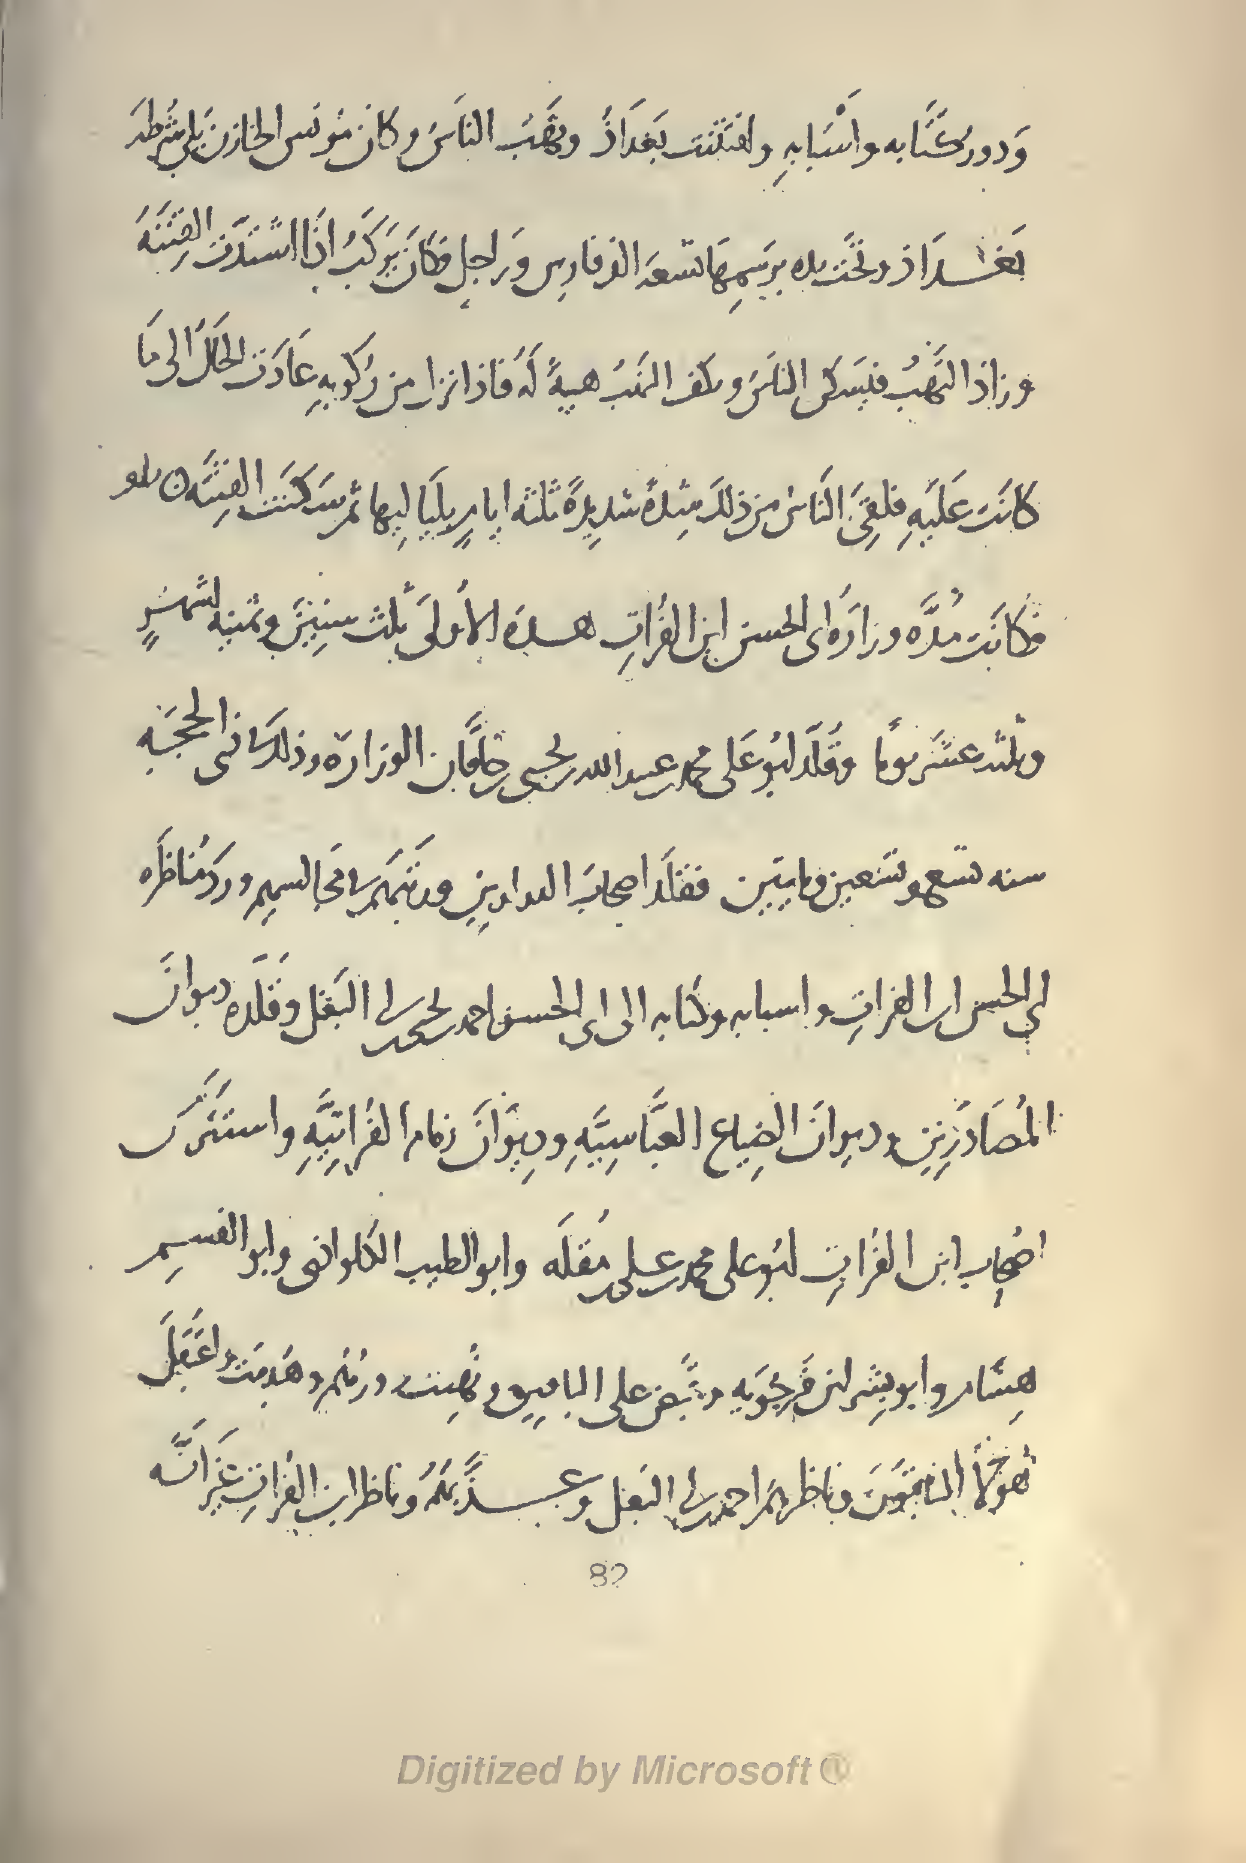 وَدور كُتَّابه وأَسْبَابهِ وافتَتَنت بَغدَاذُ ونُهَبَ الناسُ وكانَ مُونس الخازن يَلى شُرطَه
بَغـداذ وتَحْتَ يده برَسمِهَا تسعه الف فارس ورَاجِلٍ فكَانَ يَرَكَبُ اذا اشتَدّت الفِتنَهُ
وزاذ النَهْبُ فيَسكن الناسُ ويكف النَهبُ هيبةً لهُ فَاذا نزل من رُكوبهِ عَادَت الحَالُ الى مَا
كانَت عَلَيهِ فلقِىَ النَاسُ من ذلك شِدةً شديدِةً ثلثه ايامٍ بلَيَاليها ثمَّ سَكنَت الفِتنَه
فكانَت مُدَّه وزارَه ابى الحسن ابن الفُرَاتِ هـذه الأُولىَ ثلث سنِينَ وثمنيه اشهـرٍ
وثلثه عشَر يومًا وقُلّدَ ابُو عَلى محمد بن عبيد الله بن يحيى بن خاقَان الوزارَه وذلكَ فى ذى الحجَه
سنه تسع وتسعين ومايتين فقلَّد اصحابَ الدواوين ورَتّبَهُم فى مَجالسهِم ورَدَّ مُناظَره
ابى الحسن ابن الفراتِ واسبابه وكتابه الى ابى الحسن احمد بن يحيى بن ابى البَغل وقَلَّدَه ديوانَ
المُصَادَرِين وديوانَ الضِياع العَبَّاسِيَّهِ ودِيوَانَ زمام الفُرَاتِيَّهِ واستَتَر من
اصحاب ابن الفُراتِ ابُو على محمد بن عـلى بن مُقلَه وابو الطيب الكلواذى وابو القسـم
هِشَام وابو بِشر ابن فَرجوَيهِ وقُبِضَ على الباقين ونُهبت دورُهُم وهُدِمَت واعتُقلَ
هَوُلاَء الباقُونَ وناظرهم احمد بن ابى البَغل وعـذّبَهُم وناظر ابن الفُراتِ غَيرَ انَّه
82
Digitized by Microsoft®